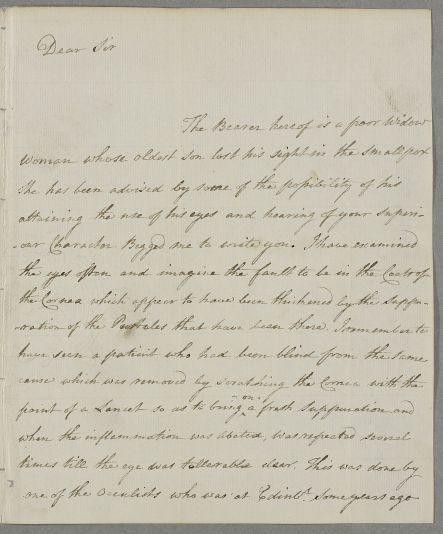 Dear Sir
The Bearer hereof is a poor Widow
Woman whose oldest son lost his sight in the small pox
She has been advised by some of the possibility of his
attaining the use of his eyes and hearing of your Superi-
-our Character Begged me to write you. I have examined
the eyes often and imagine the fault to be in the Coats of
the Cornea which appear to have been thickened by the Suppu-
-ration of the Pustules that have been there. I remember to
have seen a patient who had been blind from the same
cause which was removed by scratching the Cornea with the
point of a Lancet so as to bring on a fresh Suppuration and
when the inflammation was abated, was repeated several
times till the eye was tollerable clear. This was done by
one of the Oculists who was at Edinbr. some years ago